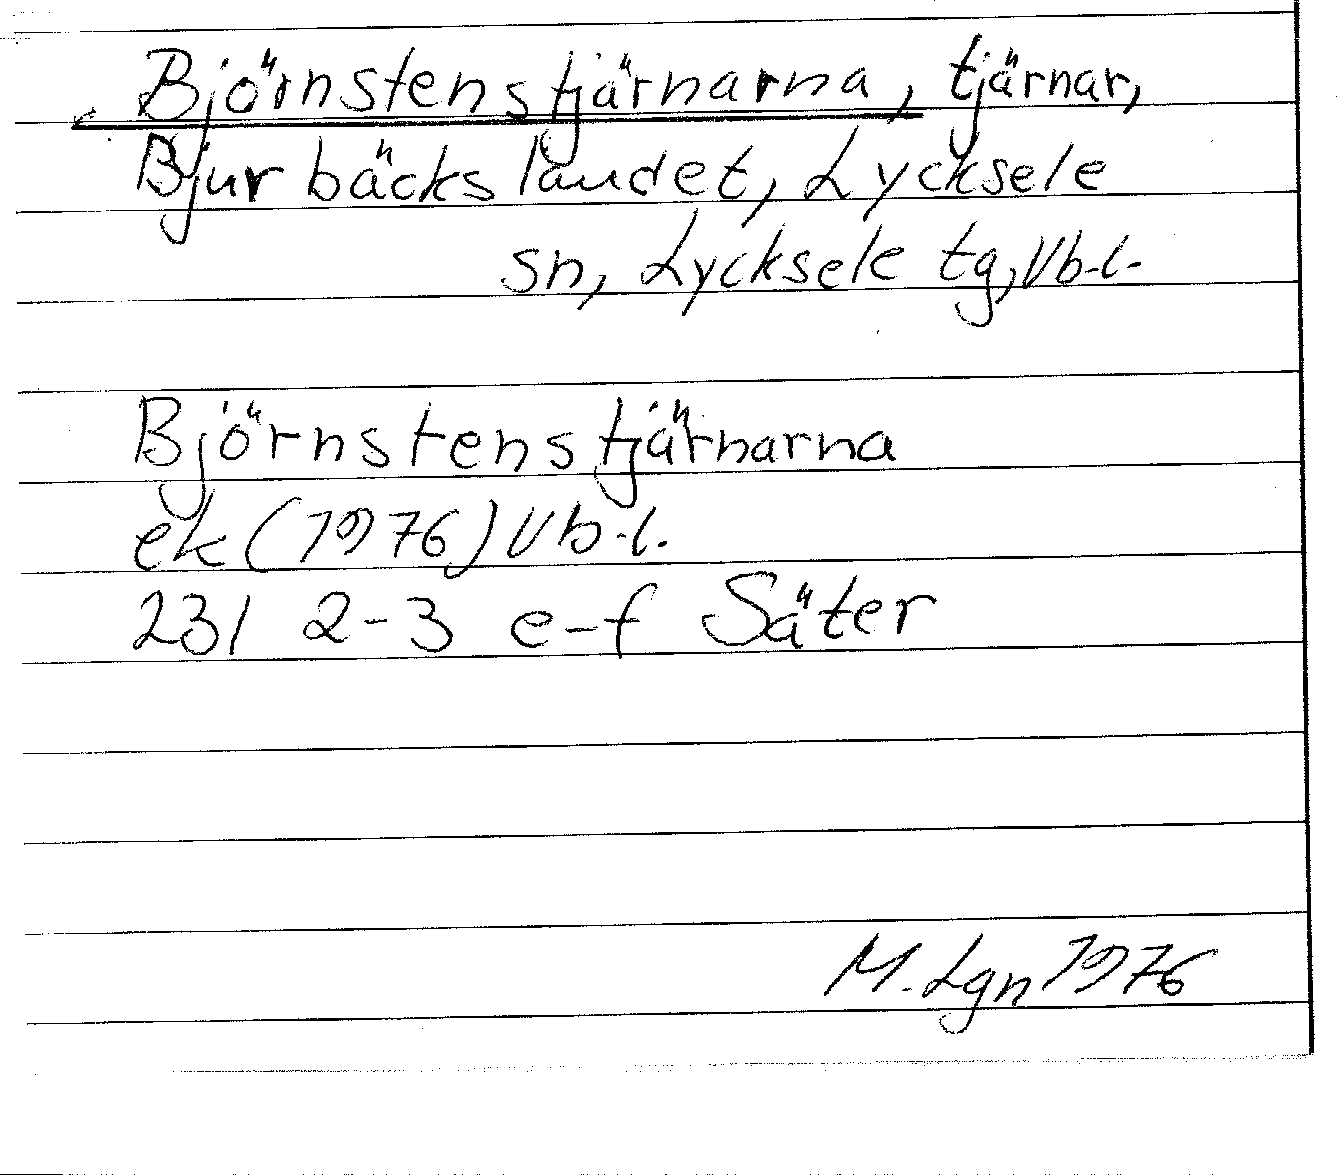 Björnstenstjärnarna, tjärnar,
Bjurbäckslandet, Lycksele
sn, Lycksele tg, Vb.l.
Björnstenstjärnarna
ek (1976) Vb.l.
231 2-3 e-f Säter
M. Lgn 1976